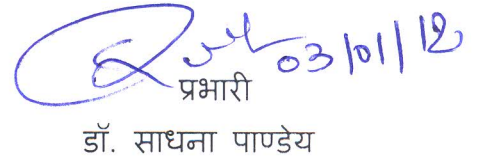 03/01/12
प्रभारी
डॉ. साधना पाण्डेय